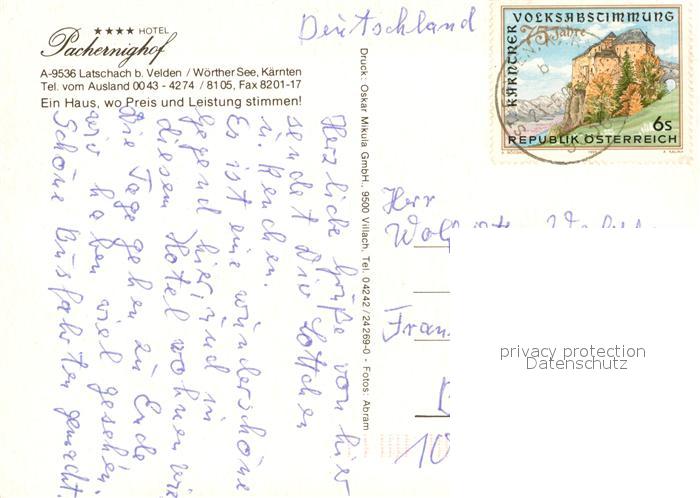 ★★★★ HOTEL
Pachernighof
A-9536 Latschach b. Velden / Wörther See, Kärnten
Tel. vom Ausland 0043 - 4274 / 8105, Fax 8201-17
Ein Haus, wo Preis und Leistung stimmen!
Deutschland
KÄRNTNER VOLKSABSTIMMUNG
75 Jahre
6s
REPUBLIK ÖSTERREICH
Druck: Oskar Mikula GmbH., 9500 Villach, Tel. 04242 / 24269-0 - Fotos: Abram
Herzliche Grüße von hier
sendet Dir Lottchen
u. Renchen.
Es ist eine wunderschöne
Gegend hier und in
diesem Hotel wohnen wir
Die Tage gehen zu Ende
wir haben viel gesehen,
Schöne Ausfahrten gemacht.
Herr
10
privacy protection
Datenschutz